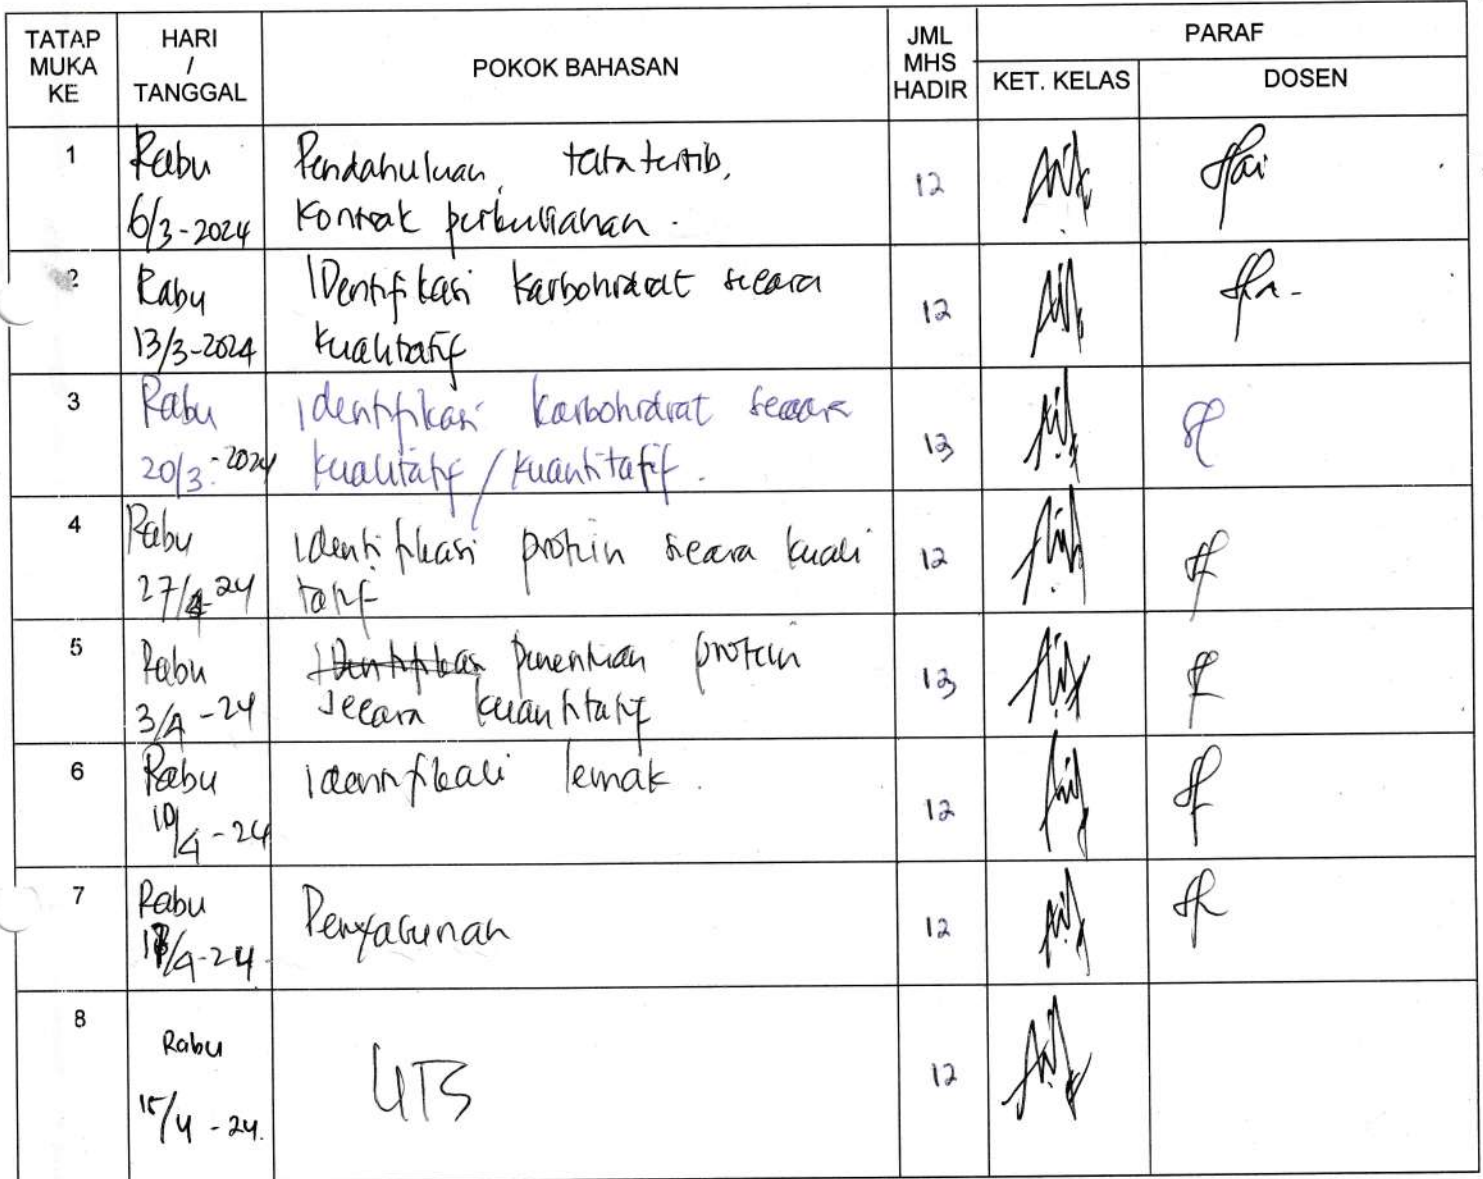 TATAP MUKA KE
HARI / TANGGAL
POKOK BAHASAN
JML MHS HADIR
PARAF
KET. KELAS
DOSEN
1
Rabu
6/3-2024
Pendahuluan, tata tertib,
Kontrak perkuliahan.
12
2
Rabu
13/3-2024
IDentifikasi karbohidrat secara
kualitatif
12
3
Rabu
20/3-2024
identifikasi karbohidrat secara
kualitatif / kuantitatif.
13
4
Rabu
27/ -24
identifikasi protein secara kuali
tatif
12
5
Rabu
3/4-24
IDentifikasi penentuan protein
secara kuantitatif
13
6
Rabu
10/4-24
identifikasi lemak.
12
7
Rabu
/4-24.
Penyabunan
12
8
Rabu
15/4-24.
UTS
12